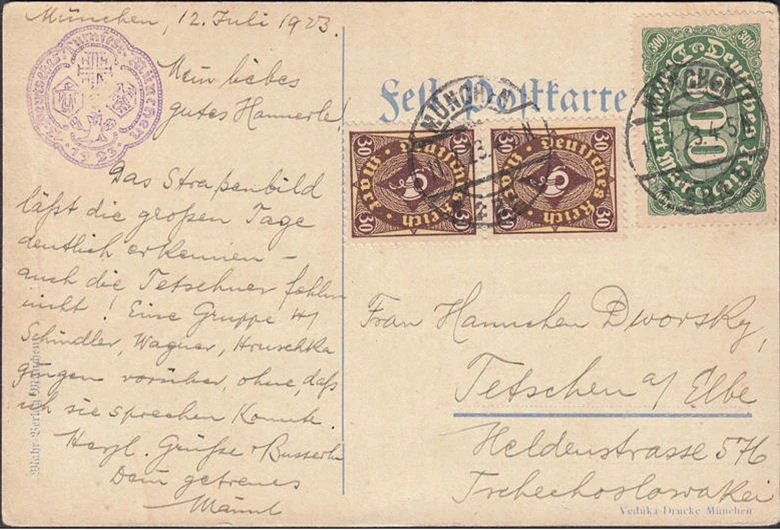 München, 12. Juli 1923.
Mein liebes
gutes Hannerle!
Das Straßenbild
läßt die großen Tage
deutlich erkennen –
auch die Tetschner fehlen
nicht! Eine Gruppe
Schindler, Wagner, Hruschka
gingen vorüber, ohne, daß
ich sie sprechen konnte.
Herzl. Grüße + Busserln
Dein getreues
Mannl
Fest-Postkarte
Deutsches Reich
300
30
Mark
Deutsches Reich
30
Mark
Deutsches Reich
MÜNCHEN
MÜNCHEN
Frau Hannchen Dworsky,
Tetschen a/ Elbe
Heldenstrasse 576
Tschechoslowakei
Vedika-Drucke München
München
1923